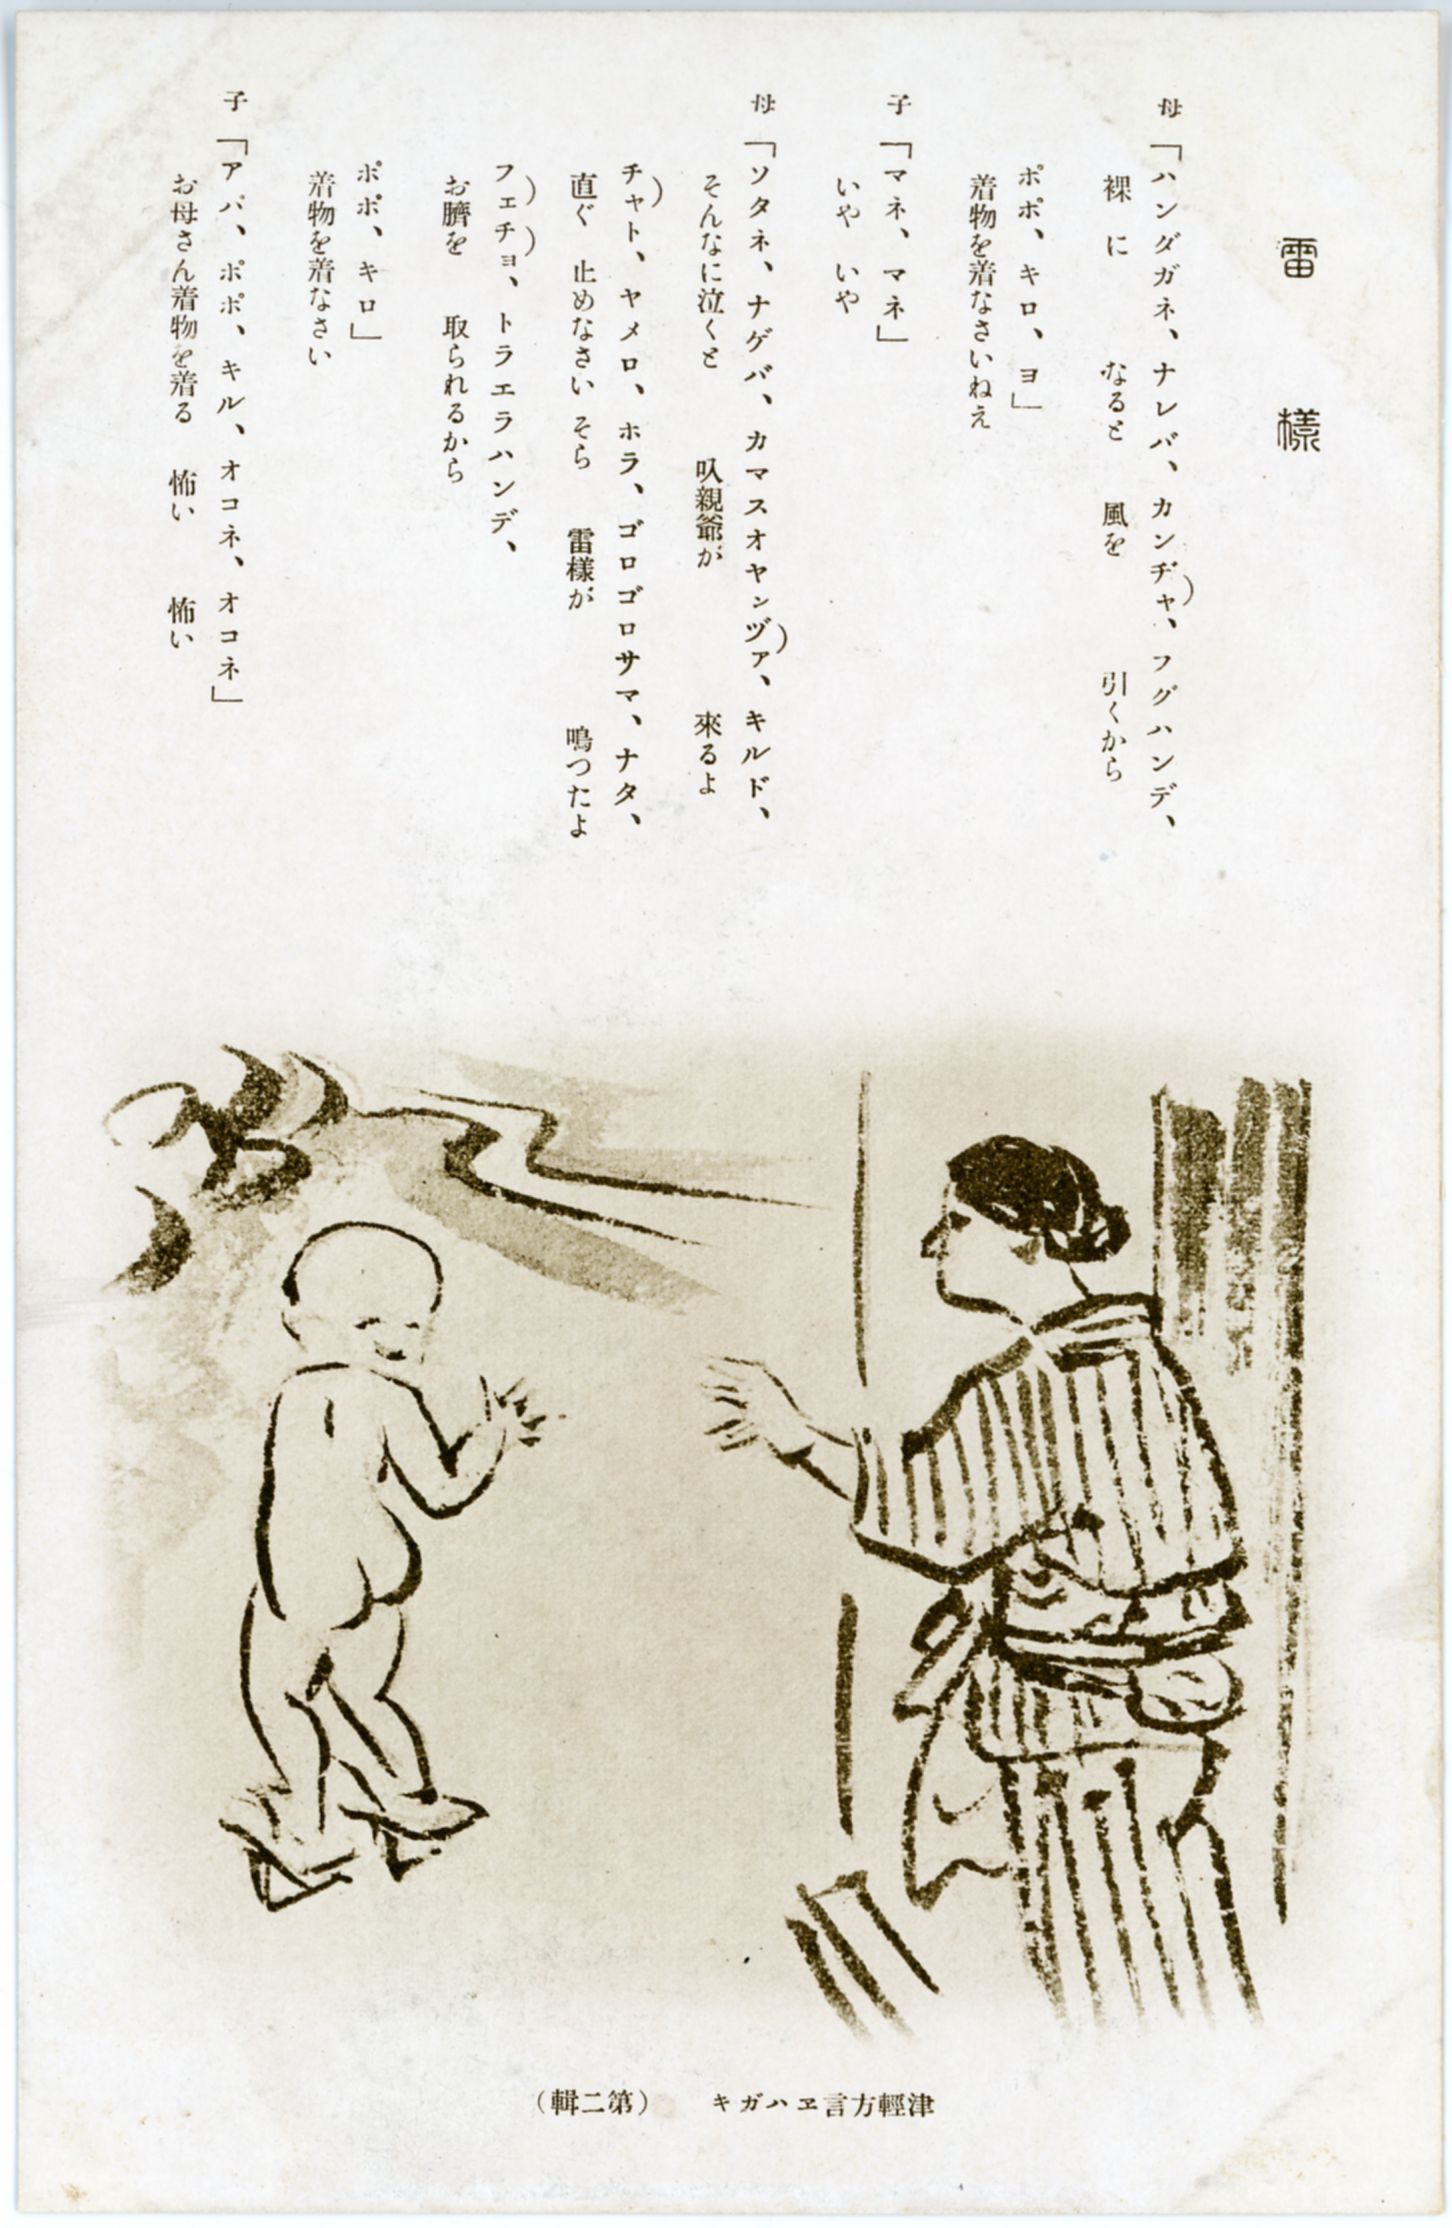 雷樣
母「ハンダガネ、ナレバ、カンヂャ、フグハンデ、
裸に なると 風を 引くから
ポポ、キロ、ヨ」
着物を着なさいねえ
子「マネ、マネ」
いや いや
母「ソタネ、ナゲバ、カマスオヤンヅァ、キルド、
そんなに泣くと 叺親爺が 來るよ
チャト、ヤメロ、ホラ、ゴロゴロサマ、ナタ、
直ぐ 止めなさい そら 雷樣が 鳴つたよ
フェチョ、トラエラハンデ、
お臍を 取られるから
ポポ、キロ」
着物を着なさい
子「アバ、ポポ、キル、オコネ、オコネ」
お母さん着物を着る 怖い 怖い
津輕方言ヱハガキ (第二輯)